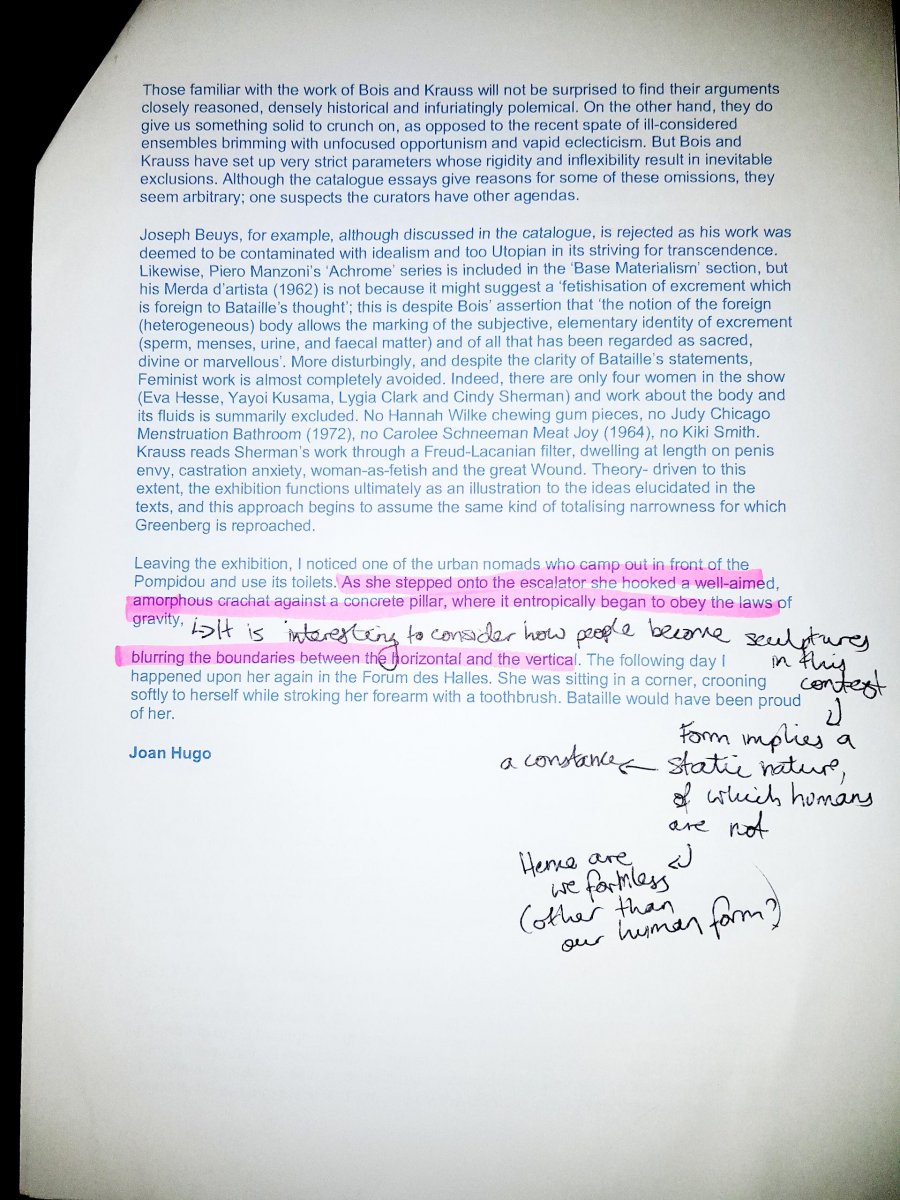 Those familiar with the work of Bois and Krauss will not be surprised to find their arguments
closely reasoned, densely historical and infuriatingly polemical. On the other hand, they do
give us something solid to crunch on, as opposed to the recent spate of ill-considered
ensembles brimming with unfocused opportunism and vapid eclecticism. But Bois and
Krauss have set up very strict parameters whose rigidity and inflexibility result in inevitable
exclusions. Although the catalogue essays give reasons for some of these omissions, they
seem arbitrary; one suspects the curators have other agendas.
Joseph Beuys, for example, although discussed in the catalogue, is rejected as his work was
deemed to be contaminated with idealism and too Utopian in its striving for transcendence.
Likewise, Piero Manzoni’s ‘Achrome’ series is included in the ‘Base Materialism’ section, but
his Merda d’artista (1962) is not because it might suggest a ‘fetishisation of excrement which
is foreign to Bataille’s thought’; this is despite Bois’ assertion that ‘the notion of the foreign
(heterogeneous) body allows the marking of the subjective, elementary identity of excrement
(sperm, menses, urine, and faecal matter) and of all that has been regarded as sacred,
divine or marvellous’. More disturbingly, and despite the clarity of Bataille’s statements,
Feminist work is almost completely avoided. Indeed, there are only four women in the show
(Eva Hesse, Yayoi Kusama, Lygia Clark and Cindy Sherman) and work about the body and
its fluids is summarily excluded. No Hannah Wilke chewing gum pieces, no Judy Chicago
Menstruation Bathroom (1972), no Carolee Schneeman Meat Joy (1964), no Kiki Smith.
Krauss reads Sherman’s work through a Freud-Lacanian filter, dwelling at length on penis
envy, castration anxiety, woman-as-fetish and the great Wound. Theory- driven to this
extent, the exhibition functions ultimately as an illustration to the ideas elucidated in the
texts, and this approach begins to assume the same kind of totalising narrowness for which
Greenberg is reproached.
Leaving the exhibition, I noticed one of the urban nomads who camp out in front of the
Pompidou and use its toilets. As she stepped onto the escalator she hooked a well-aimed,
amorphous crachat against a concrete pillar, where it entropically began to obey the laws of
gravity,
It is interesting to consider how people become sculptures
in this
context
blurring the boundaries between the horizontal and the vertical. The following day I
happened upon her again in the Forum des Halles. She was sitting in a corner, crooning
softly to herself while stroking her forearm with a toothbrush. Bataille would have been proud
of her.
Joan Hugo
Form implies a
static nature,
a constance
of which humans
are not
Hence are
we formless
(other than
our human form?)